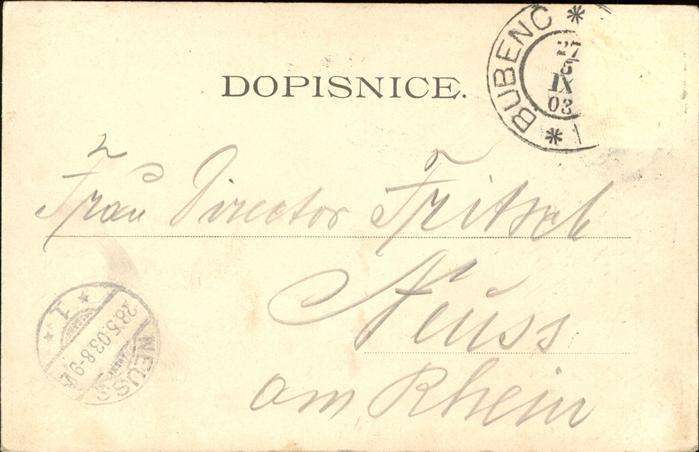 DOPISNICE.
BUBENC
27
5
IX
03
Frau Director Fritsch
Neuss
am Rhein
NEUSS
28.5.03.8-9
* 1 *